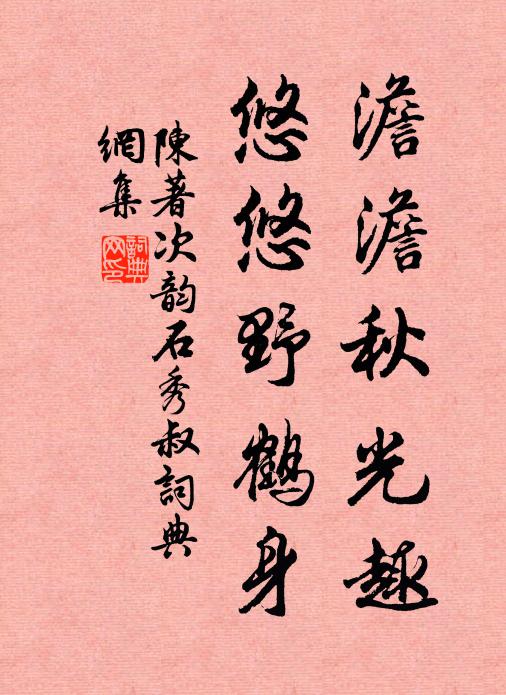 澹澹秋光趣
悠悠野鶴身
陳著次韵石秀叔詞典
網集
詞典
网印